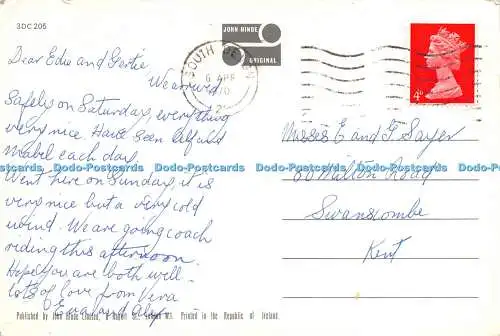 3DC 206
JOHN HINDE
ORIGINAL
SOUTH DEVON
6 APR
1970
4D
Dear Edie and Gertie
We arrived
Safely on Saturday, everything
very nice Have seen Alf and
Mabel each day.
Went here on Sunday, it is
very nice but a very cold
wind. We are going coach
riding this afternoon.
Hope you are both well
lots of love from Vera
Eva and Alex
Misses E and G Sayer
Milton Road
Swanscombe
Kent
Dodo-Postcards Dodo-Postcards Dodo-Postcards Dodo-Postcards Dodo-Postcards
Published by John Hinde Limited, London W.1. Printed in the Republic of Ireland.